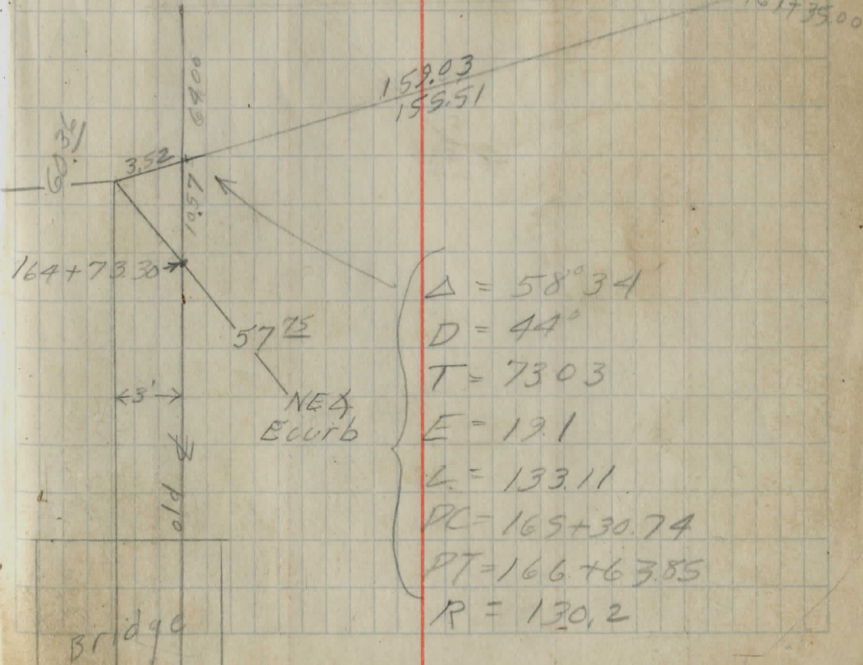 159.03
155.51
64.00
60.36
3.52
10.57
164+73.30
57 75
NE∡
E curb
3'
old ℄
Bridge
Δ = 58° 34'
D = 44°
T = 73.03
E = 19.1
L = 133.11
PC = 165+30.74
PT = 166+63.85
R = 130.2